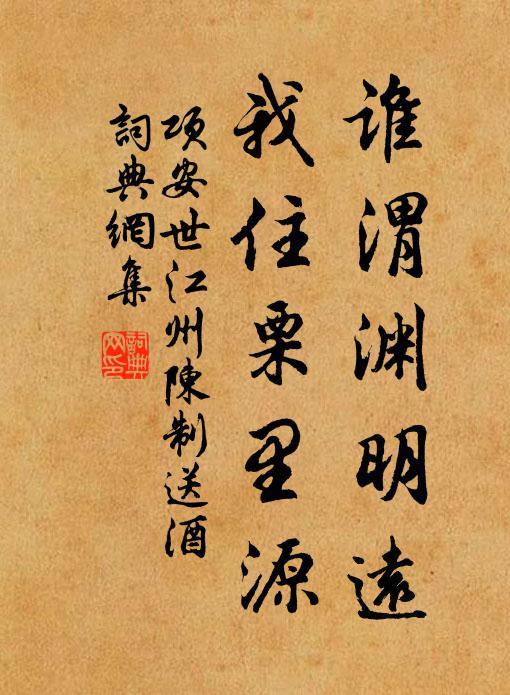 誰渭渊明遠
我住栗里源
项安世江州陳制送酒
詞典網集
詞典网印